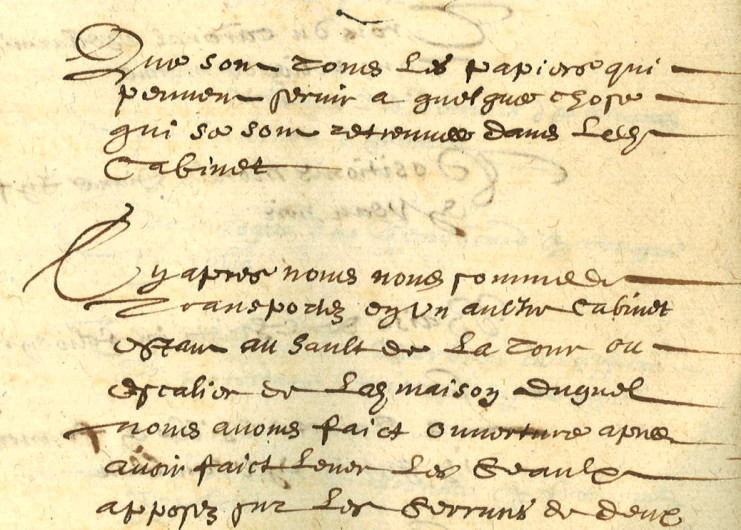 Que sont tous les papiers qui
peuvent servir a quelque chose
qui se sont retrouvez dans led
Cabinet
Cy apres nous nous sommes
transportez en un aultre Cabinet
estant au hault de la tour ou
escalier de lad maison duquel
nous avons faict ouverture apres
avoir faict lever les Seaulx
apposez sur les serrures de deux